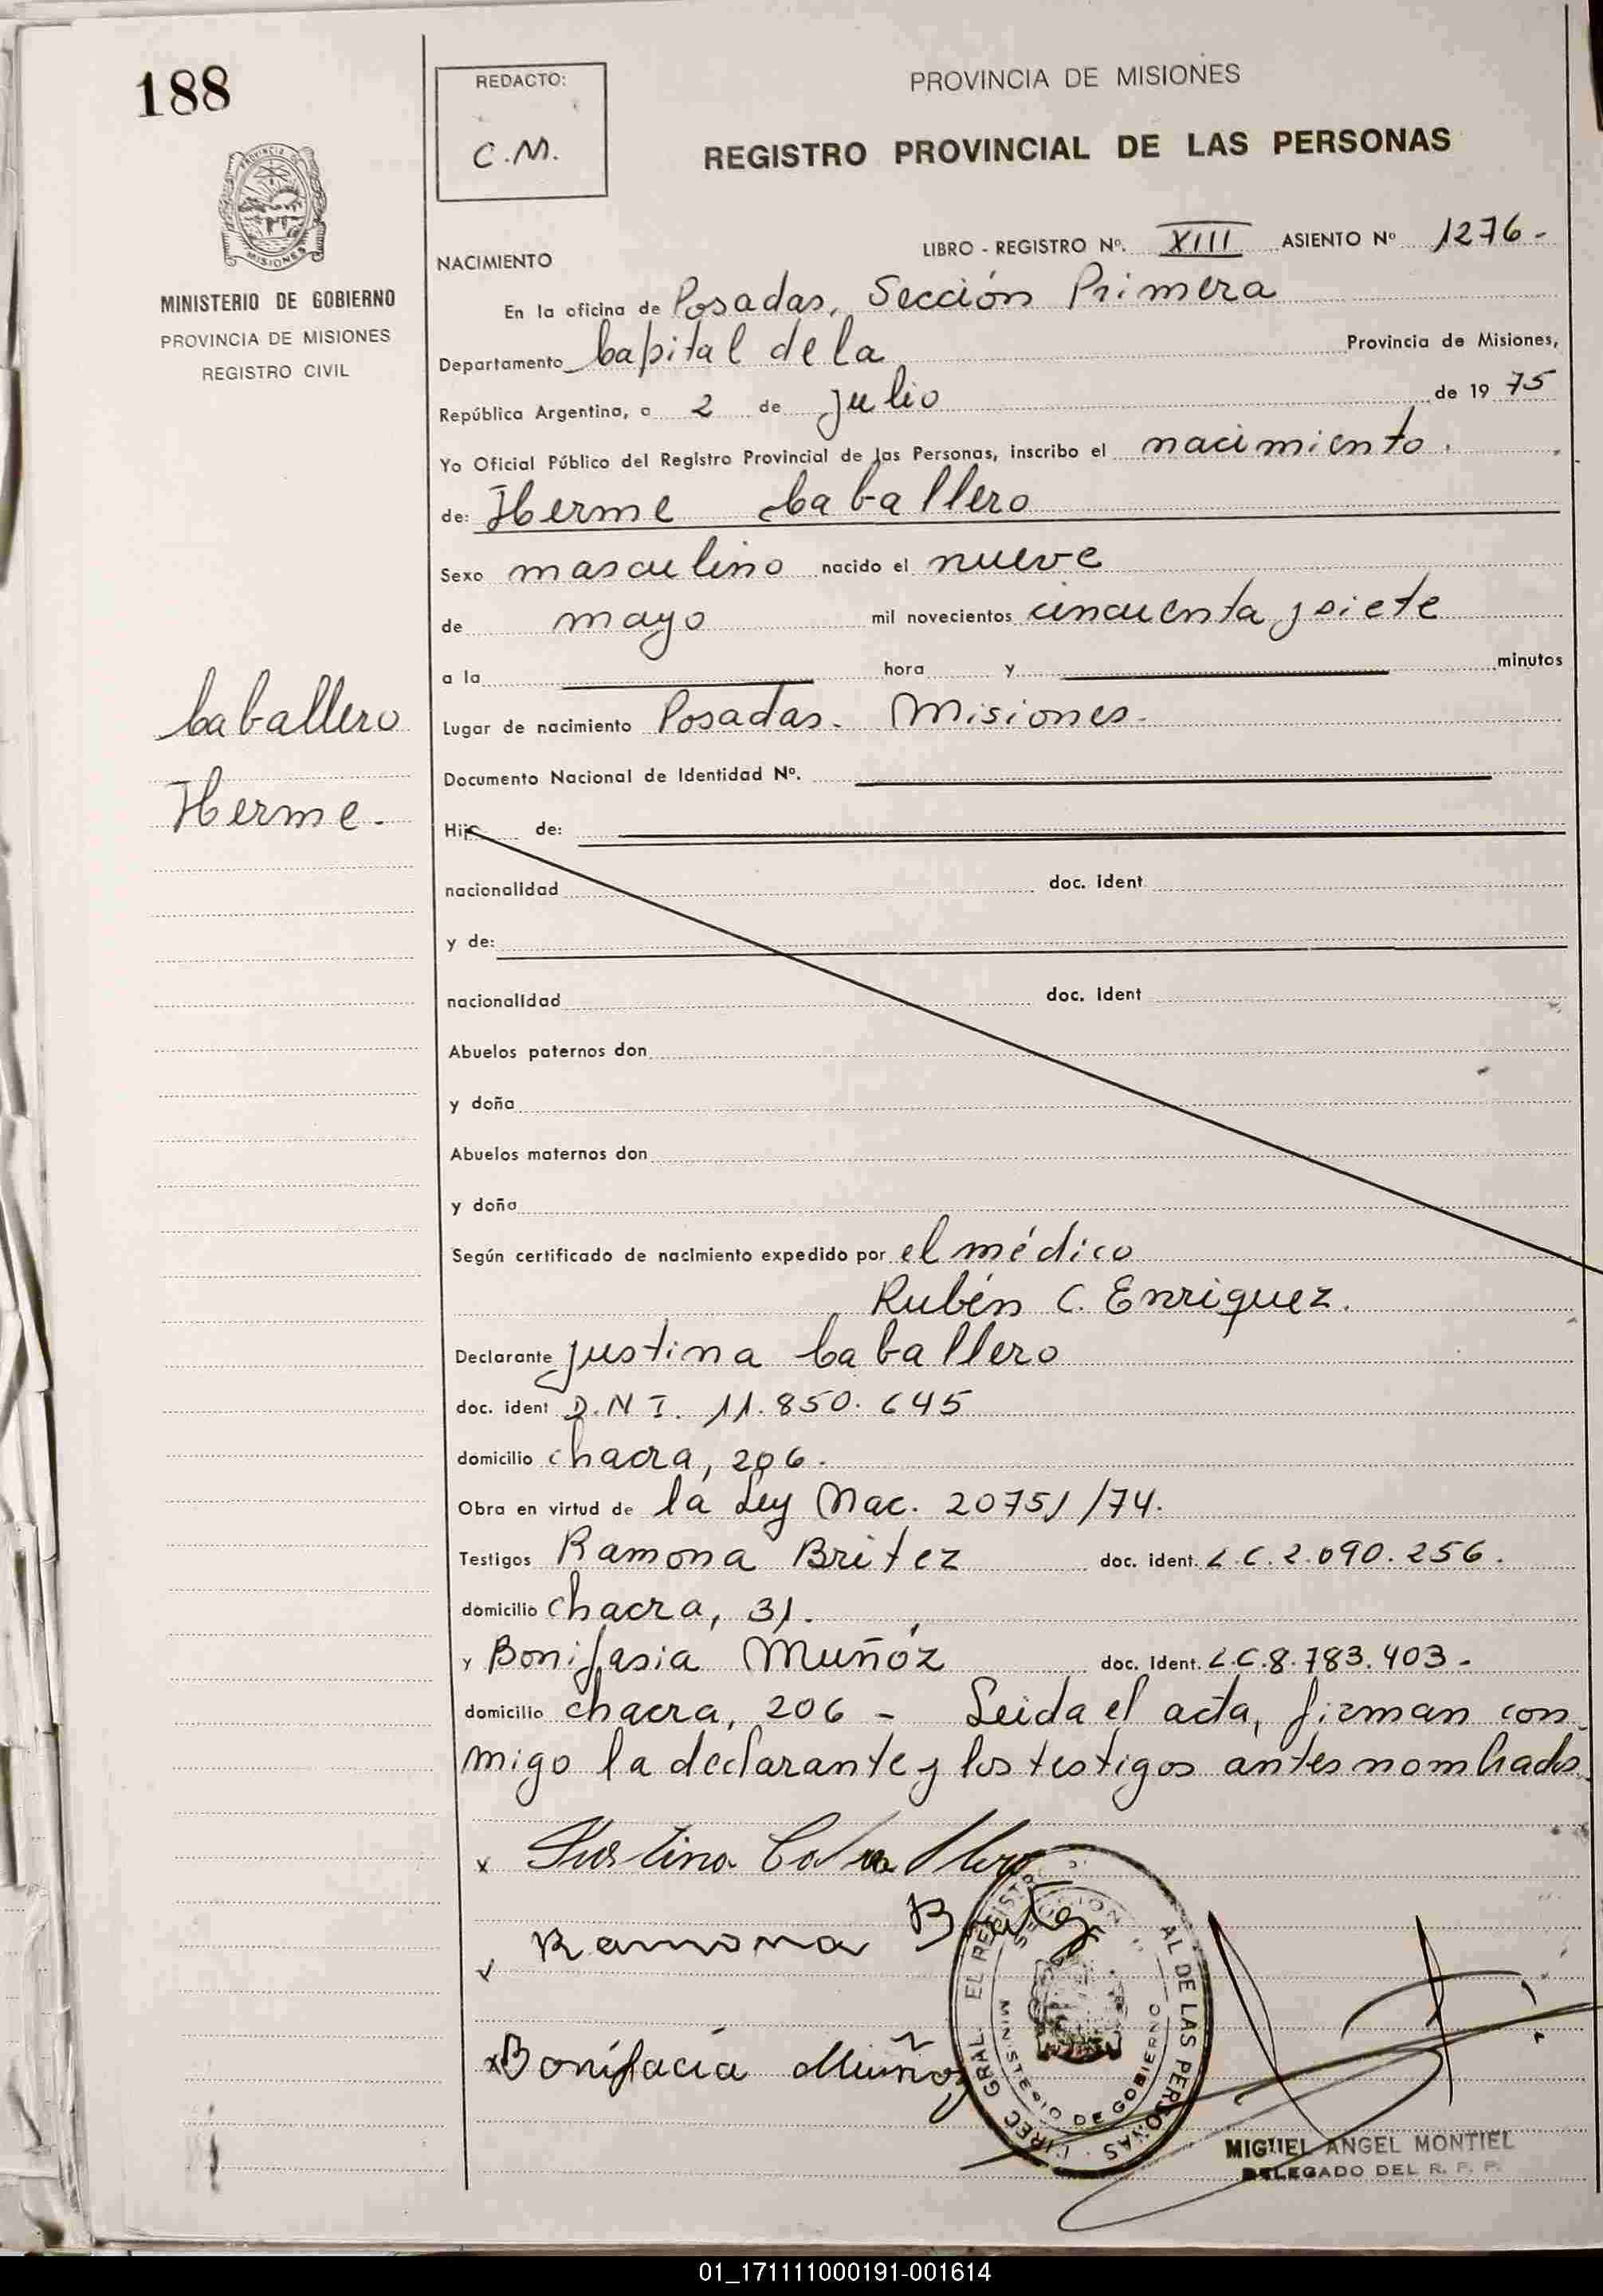 188
REDACTO:
C.M.
PROVINCIA DE MISIONES
REGISTRO PROVINCIAL DE LAS PERSONAS
MISIONES
MINISTERIO DE GOBIERNO
PROVINCIA DE MISIONES
REGISTRO CIVIL
LIBRO - REGISTRO Nº. XIII ASIENTO Nº 1276-
NACIMIENTO
En la oficina de Posadas, Sección Primera
Departamento Capital de la Provincia de Misiones,
República Argentina, a 2 de Julio de 19 75
Yo Oficial Público del Registro Provincial de las Personas, inscribo el nacimiento.
de: Herme Caballero
Sexo masculino nacido el nueve
de mayo mil novecientos cincuenta y siete
a la hora y minutos
Caballero
Herme.
Lugar de nacimiento Posadas. Misiones.
Documento Nacional de Identidad Nº.
Hijo de:
nacionalidad doc. ident
y de:
nacionalidad doc. ident
Abuelos paternos don
y doña
Abuelos maternos don
y doña
Según certificado de nacimiento expedido por el médico
Rubén C. Enriquez.
Declarante Justina Caballero
doc. ident D.N I. 11.850.645
domicilio chacra, 206.
Obra en virtud de la Ley Nac. 20751/74.
Testigos Ramona Britez doc. ident. L.C.2.090.256.
domicilio chacra, 31.
y Bonifasia Muñóz doc. ident. L.C.8.783.403-
domicilio chacra, 206 - Leida el acta, firman con
migo la declarante y los testigos antes nombrados.
x Justina Caballero
Ramona Britez
x Bonifacia Muñoz
DIREC. GRAL. EL REGISTRO AL DE LAS PERSONAS
SECCION
MINISTERIO DE GOBIERNO
MIGUEL ANGEL MONTIEL
DELEGADO DEL R. P. P.
01_171111000191-001614